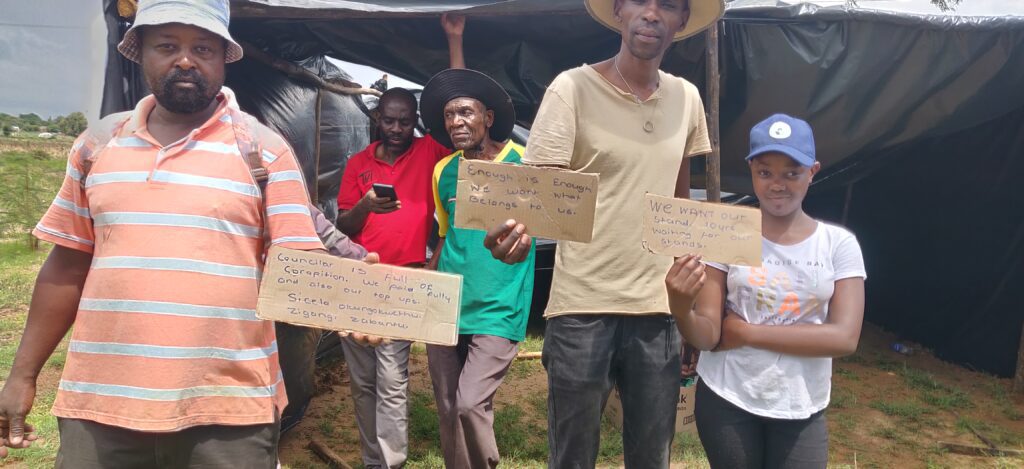 Councilar is Full OF
Corapition. We paid Fully
and also our top ups.
Sicela okungokwethu
Zigangi zabantu
Enough is Enough
We want what
Belongs to us.
WE WANT OUR
Stand/ 10yrs
Waiting for our
Stands.